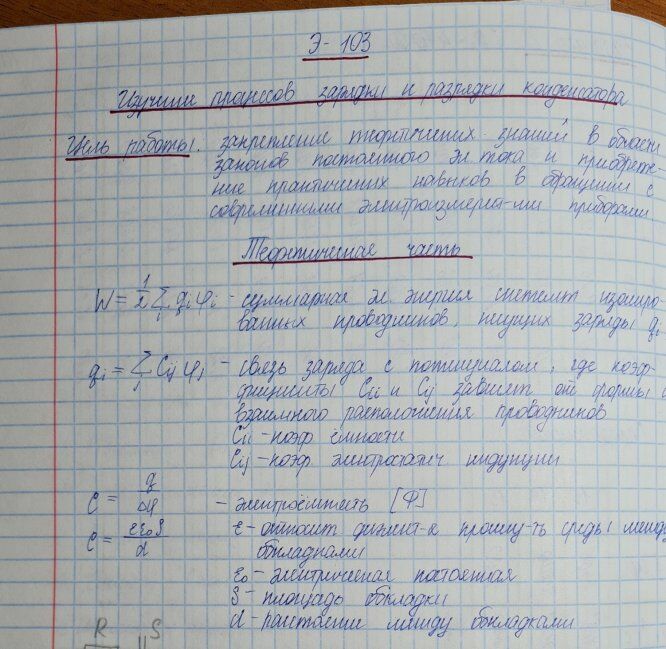 Э-103
Изучение процессов зарядки и разрядки конденсатора
Цель работы: закрепление теоретических знаний в области
законов постоянного эл тока и приобрете-
ние практических навыков в обращении с
современными электроизмерит-ми приборами
Теоретическая часть
W = 1/2 Σi qiφi - суммарная эл. энергия системы изолиро-
ванных проводников, несущих заряды qi
qi = Σj Cij φj - связь заряда с потенциалом, где коэф-
фициенты Cii и Cij зависят от формы и
взаимного расположения проводников
Cii - коэф ёмкости
Cij - коэф электростатич индукции
C = q/Δφ - электроёмкость [Ф]
C = εε₀S/d ε - относит диэлект-я прониц-ть среды между
обкладками
ε₀ - электрическая постоянная
S - площадь обкладки
d - расстояние между обкладками
R S